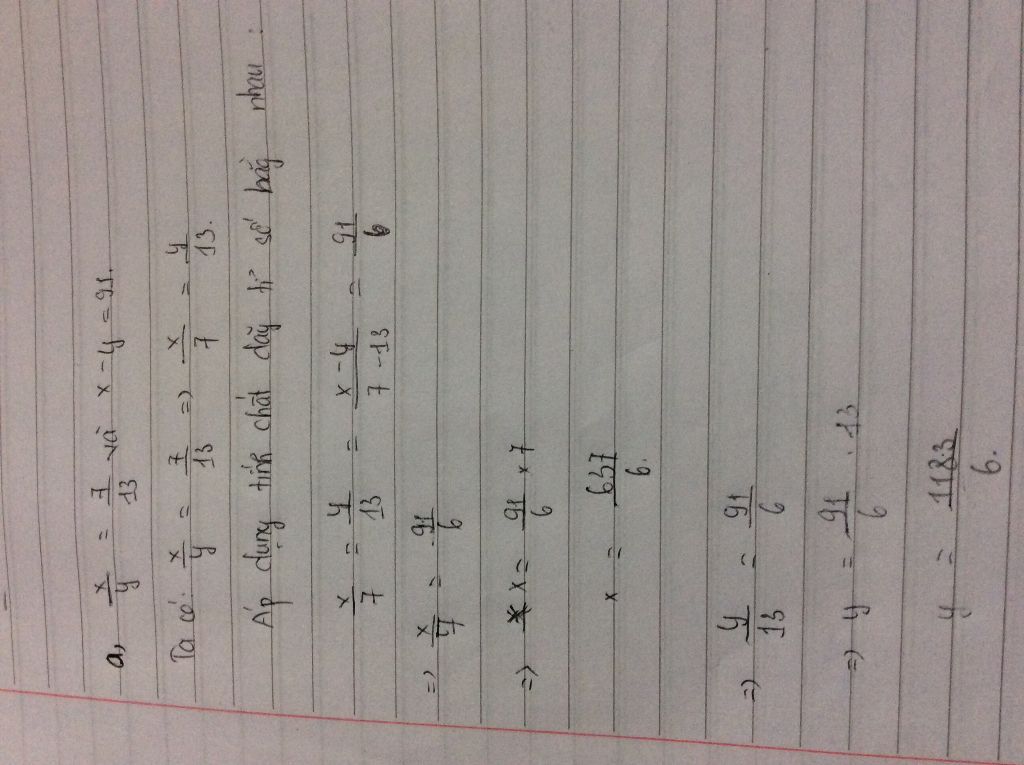 a, x/y = 7/13 và x - y = 91.
Ta có: x/y = 7/13 => x/7 = y/13.
Áp dụng tính chất dãy tỉ số bằg nhau :
x/7 = y/13 = x - y/7 - 13 = 91/6
=> x/7 = 91/6
=> x = 91/6 × 7
x = 637/6.
=> y/13 = 91/6
=> y = 91/6 . 13
y = 1183/6.